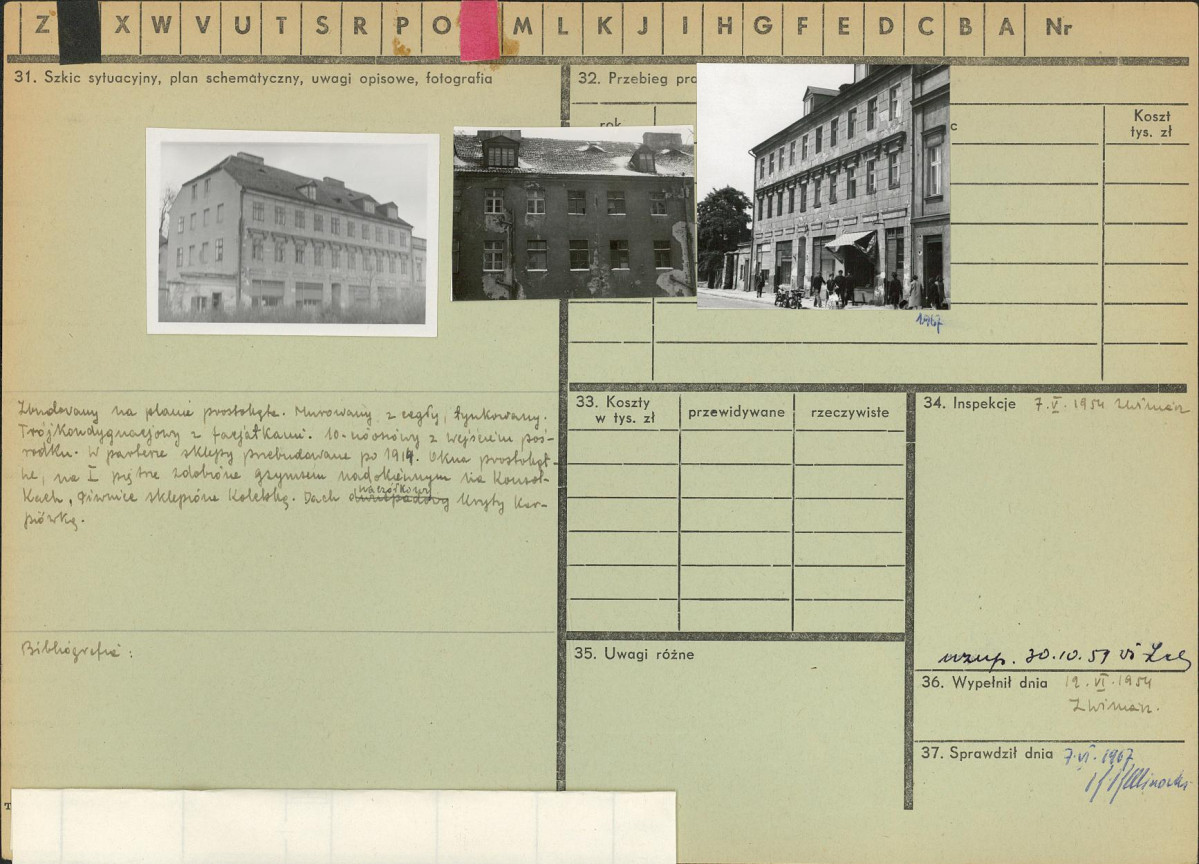 Z X W V U T S R P O M L K J I H G F E D C B A Nr
31. Szkic sytuacyjny, plan schematyczny, uwagi opisowe, fotografia
Zbudowany na planie prostokąta. Murowany z cegły, tynkowany.
Trójkondygnacjowy z facjatkami. 10-osiowy z wejściem poś-
rodku. W parterze sklepy przebudowane po 1914. Okna prostokąt-
ne, na I piętrze zdobione gzymsem nadokiennym na konsol-
kach, piwnice sklepione kolebką. Dach naczółkowy kryty kar-
piówką.
Bibliografia:
32. Przebieg pra
rok
c
Koszt
tys. zł
1967
33. Koszty
w tys. zł
przewidywane
rzeczywiste
34. Inspekcje 7.V.1954
uzup. 30.10.59
35. Uwagi różne
36. Wypełnił dnia 12.VI.1954
37. Sprawdził dnia 7.VI.1967